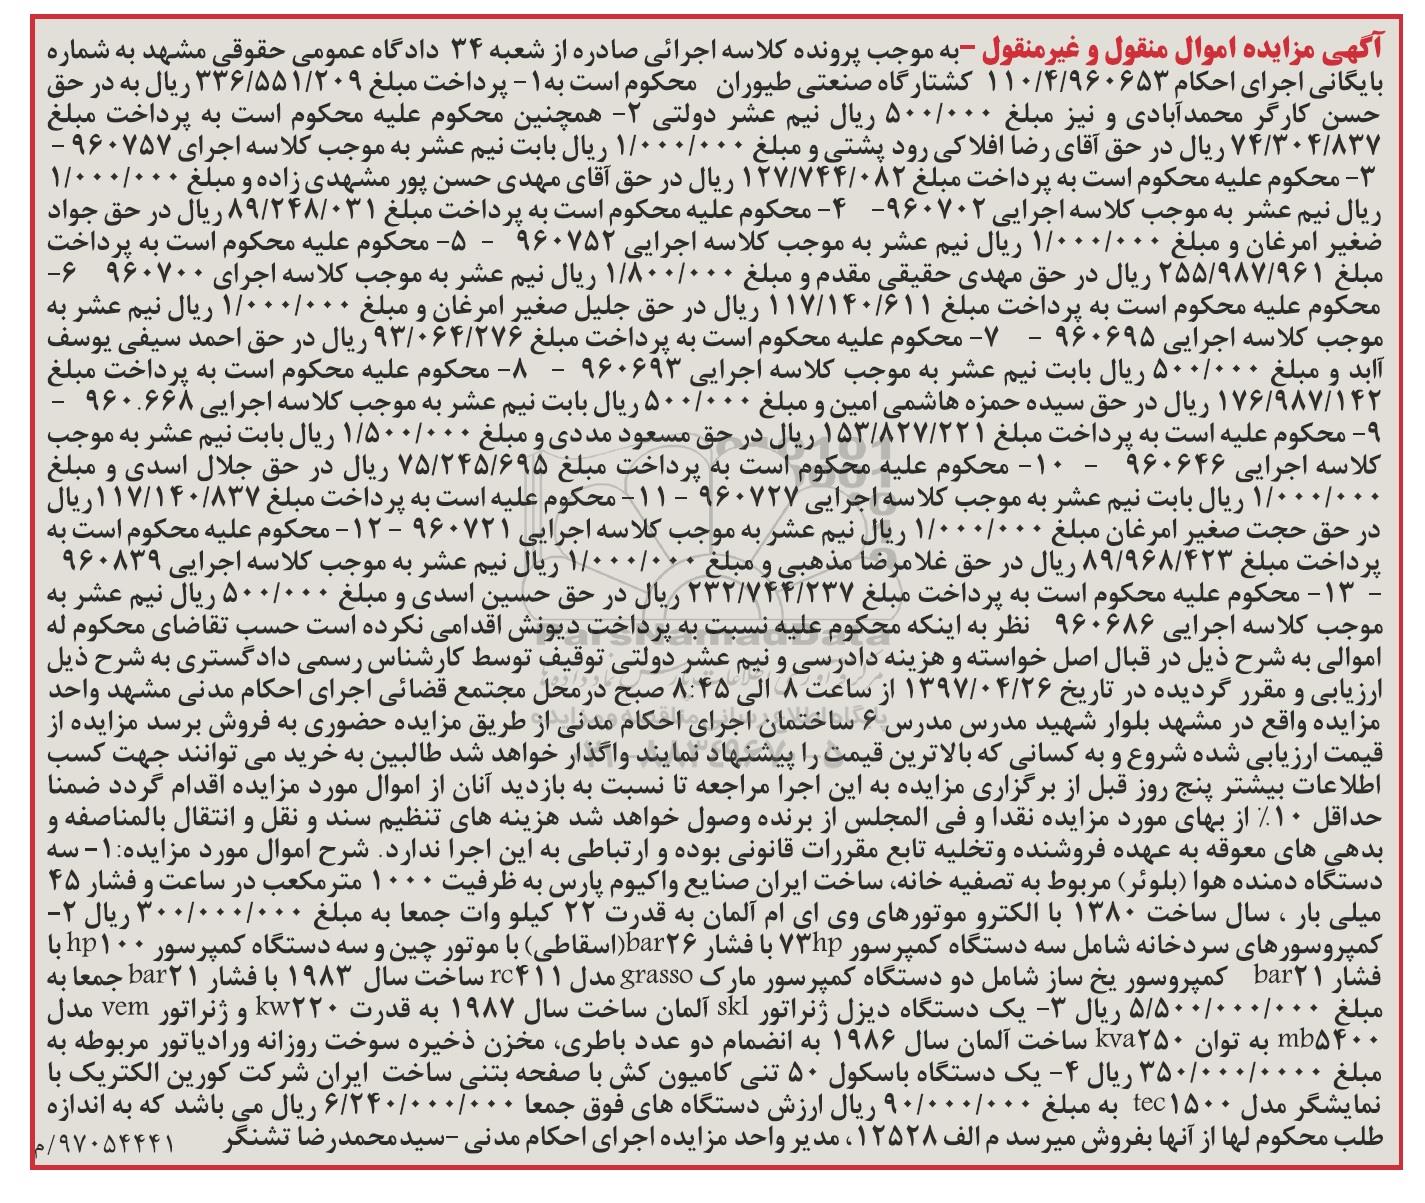 آگهی مزایده اموال منقول و غیرمنقول -به موجب پرونده کلاسه اجرائی صادره از شعبه ۳۴ دادگاه عمومی حقوقی مشهد به شماره
بایگانی اجرای احکام ۱۱۰/۴/۹۶۰۶۵۳ کشتارگاه صنعتی طیوران محکوم است به۱- پرداخت مبلغ ۳۳۶/۵۵۱/۲۰۹ ریال به در حق
حسن کارگر محمدآبادی و نیز مبلغ ۵۰۰/۰۰۰ ریال نیم عشر دولتی ۲- همچنین محکوم علیه محکوم است به پرداخت مبلغ
۷۴/۳۰۴/۸۳۷ ریال در حق آقای رضا افلاکی رود پشتی و مبلغ ۱/۰۰۰/۰۰۰ ریال بابت نیم عشر به موجب کلاسه اجرای ۹۶۰۷۵۷ -
۳- محکوم علیه محکوم است به پرداخت مبلغ ۱۲۷/۷۴۴/۰۸۲ ریال در حق آقای مهدی حسن پور مشهدی زاده و مبلغ ۱/۰۰۰/۰۰۰
ریال نیم عشر به موجب کلاسه اجرایی ۹۶۰۷۰۲- ۴- محکوم علیه محکوم است به پرداخت مبلغ ۸۹/۲۴۸/۰۳۱ ریال در حق جواد
ضغیر امرغان و مبلغ ۱/۰۰۰/۰۰۰ ریال نیم عشر به موجب کلاسه اجرایی ۹۶۰۷۵۲ - ۵- محکوم علیه محکوم است به پرداخت
مبلغ ۲۵۵/۹۸۷/۹۶۱ ریال در حق مهدی حقیقی مقدم و مبلغ ۱/۸۰۰/۰۰۰ ریال نیم عشر به موجب کلاسه اجرای ۹۶۰۷۰۰ ۶-
محکوم علیه محکوم است به پرداخت مبلغ ۱۱۷/۱۴۰/۶۱۱ ریال در حق جلیل صغیر امرغان و مبلغ ۱/۰۰۰/۰۰۰ ریال نیم عشر به
موجب کلاسه اجرایی ۹۶۰۶۹۵ - ۷- محکوم علیه محکوم است به پرداخت مبلغ ۹۳/۰۶۴/۲۷۶ ریال در حق احمد سیفی یوسف
آابد و مبلغ ۵۰۰/۰۰۰ ریال بابت نیم عشر به موجب کلاسه اجرایی ۹۶۰۶۹۳ - ۸- محکوم علیه محکوم است به پرداخت مبلغ
۱۷۶/۹۸۷/۱۴۲ ریال در حق سیده حمزه هاشمی امین و مبلغ ۵۰۰/۰۰۰ ریال بابت نیم عشر به موجب کلاسه اجرایی ۹۶۰.۶۶۸ -
۹- محکوم علیه است به پرداخت مبلغ ۱۵۳/۸۲۷/۲۲۱ ریال در حق مسعود مددی و مبلغ ۱/۵۰۰/۰۰۰ ریال بابت نیم عشر به موجب
کلاسه اجرایی ۹۶۰۶۴۶ - ۱۰- محکوم علیه محکوم است به پرداخت مبلغ ۷۵/۲۴۵/۶۹۵ ریال در حق جلال اسدی و مبلغ
۱/۰۰۰/۰۰۰ ریال بابت نیم عشر به موجب کلاسه اجرایی ۹۶۰۷۲۷ - ۱۱- محکوم علیه است به پرداخت مبلغ ۱۱۷/۱۴۰/۸۳۷ریال
در حق حجت صغیر امرغان مبلغ ۱/۰۰۰/۰۰۰ ریال نیم عشر به موجب کلاسه اجرایی ۹۶۰۷۲۱ - ۱۲- محکوم علیه محکوم است به
پرداخت مبلغ ۸۹/۹۶۸/۴۲۳ ریال در حق غلامرضا مذهبی و مبلغ ۱/۰۰۰/۰۰۰ ریال نیم عشر به موجب کلاسه اجرایی ۹۶۰۸۳۹
- ۱۳- محکوم علیه محکوم است به پرداخت مبلغ ۲۳۲/۷۴۴/۲۳۷ ریال در حق حسین اسدی و مبلغ ۵۰۰/۰۰۰ ریال نیم عشر به
موجب کلاسه اجرایی ۹۶۰۶۸۶ نظر به اینکه محکوم علیه نسبت به پرداخت دیونش اقدامی نکرده است حسب تقاضای محکوم له
اموالی به شرح ذیل در قبال اصل خواسته و هزینه دادرسی و نیم عشر دولتی توقیف توسط کارشناس رسمی دادگستری به شرح ذیل
ارزیابی و مقرر گردیده در تاریخ ۱۳۹۷/۰۴/۲۶ از ساعت ۸ الی ۸:۴۵ صبح درمحل مجتمع قضائی اجرای احکام مدنی مشهد واحد
مزایده واقع در مشهد بلوار شهید مدرس مدرس ۶ ساختمان اجرای احکام مدنی از طریق مزایده حضوری به فروش برسد مزایده از
قیمت ارزیابی شده شروع و به کسانی که بالاترین قیمت را پیشنهاد نمایند واگذار خواهد شد طالبین به خرید می توانند جهت کسب
اطلاعات بیشتر پنج روز قبل از برگزاری مزایده به این اجرا مراجعه تا نسبت به بازدید آنان از اموال مورد مزایده اقدام گردد ضمنا
حداقل ۱۰٪ از بهای مورد مزایده نقدا و فی المجلس از برنده وصول خواهد شد هزینه های تنظیم سند و نقل و انتقال بالمناصفه و
بدهی های معوقه به عهده فروشنده وتخلیه تابع مقررات قانونی بوده و ارتباطی به این اجرا ندارد. شرح اموال مورد مزایده:۱- سه
دستگاه دمنده هوا (بلوئر) مربوط به تصفیه خانه، ساخت ایران صنایع واکیوم پارس به ظرفیت ۱۰۰۰ مترمکعب در ساعت و فشار ۴۵
میلی بار ، سال ساخت ۱۳۸۰ با الکترو موتورهای وی ای ام آلمان به قدرت ۲۲ کیلو وات جمعا به مبلغ ۳۰۰/۰۰۰/۰۰۰ ریال ۲-
کمپروسورهای سردخانه شامل سه دستگاه کمپرسور ۷۳hp با فشار bar۲۶(اسقاطی) با موتور چین و سه دستگاه کمپرسور hp۱۰۰ با
فشار bar۲۱ کمپروسور یخ ساز شامل دو دستگاه کمپرسور مارک grasso مدل rc۴۱۱ ساخت سال ۱۹۸۳ با فشار bar۲۱ جمعا به
مبلغ ۵/۵۰۰/۰۰۰/۰۰۰ ریال ۳- یک دستگاه دیزل ژنراتور skl آلمان ساخت سال ۱۹۸۷ به قدرت kw۲۲۰ و ژنراتور vem مدل
mb۵۴۰۰ به توان kva۲۵۰ ساخت آلمان سال ۱۹۸۶ به انضمام دو عدد باطری، مخزن ذخیره سوخت روزانه ورادیاتور مربوطه به
مبلغ ۳۵۰/۰۰۰/۰۰۰۰ ریال ۴- یک دستگاه باسکول ۵۰ تنی کامیون کش با صفحه بتنی ساخت ایران شرکت کورین الکتریک با
نمایشگر مدل tec۱۵۰۰ به مبلغ ۹۰/۰۰۰/۰۰۰ ریال ارزش دستگاه های فوق جمعا ۶/۲۴۰/۰۰۰/۰۰۰ ریال می باشد که به اندازه
طلب محکوم لها از آنها بفروش میرسد م الف ۱۲۵۲۸، مدیر واحد مزایده اجرای احکام مدنی -سیدمحمدرضا تشنگر ۹۷۰۵۴۴۴۱/م
ParsNamadData